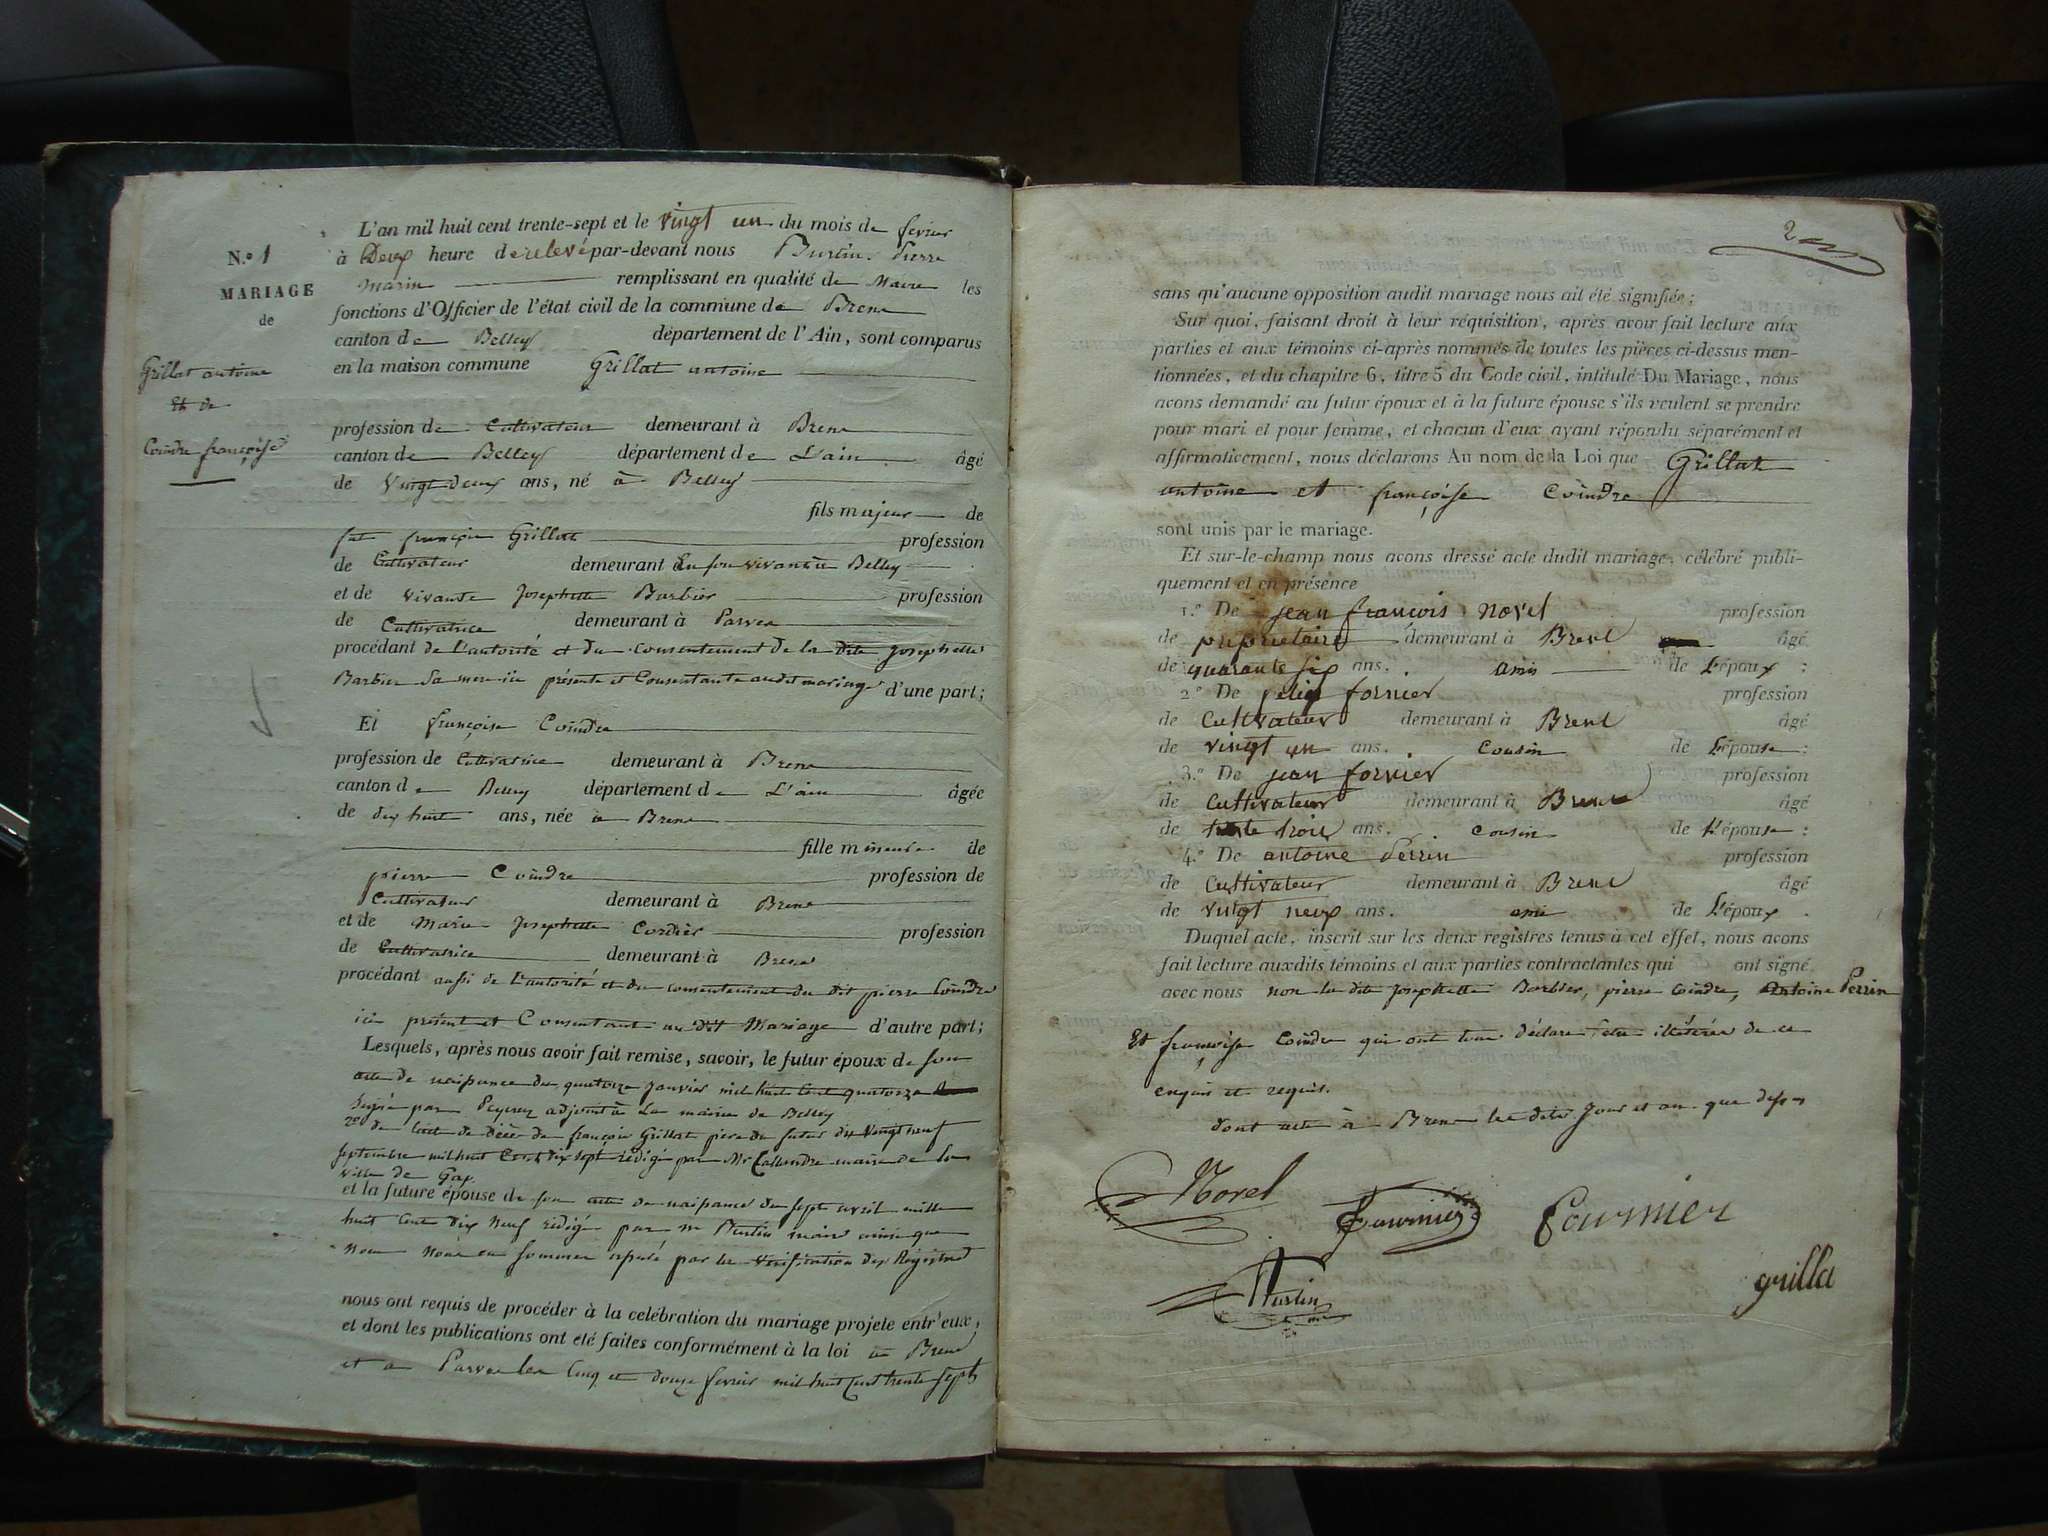 N.o 1
MARIAGE
de
Grillat antoine
Et de
Coindre françoise
L'an mil huit cent trente-sept et le vingt un du mois de fevrier
à Deux heure de relevé par-devant nous Burtin Pierre
Marin remplissant en qualité de Maire les
fonctions d'Officier de l'état civil de la commune de Brens
canton de Belley département de l'Ain, sont comparus
en la maison commune Grillat antoine
profession de Cultivateur demeurant à Brens
canton de Belley département de L'ain âgé
de Vingt deux ans, né à Belley
fils majeur de
feu françois Grillat profession
de Cultivateur demeurant En son vivant à Belley
et de vivante Josephette Barbier profession
de Cultivatrice demeurant à Parves
procédant de L'autorité et du consentement de la dite Josephette
Barbier Sa mere ici présente et Consentante audit mariage d'une part;
Et françoise Coindre
profession de Cultivatrice demeurant à Brens
canton de Belley département de L'ain âgée
de dix huit ans, née à Brens
fille mineure de
pierre Coindre profession de
Cultivateur demeurant à Brens
et de Marie Josephette Cordier profession
de Cultivatrice demeurant à Brens
procédant aussi de L'autorité et du consentement du dit pierre Coindre
ici présent et Consentant au dit Mariage d'autre part;
Lesquels, après nous avoir fait remise, savoir, le futur époux de son
acte de naissance du quatorze janvier mil huit cent quatorze
Signé par Peyrez adjoint à La mairie de Belley
2o de lact de décè de françois Grillat pere du futur du Vingt neuf
septembre mil huit Cent dix sept rédigé par Mr Callandre maire de la
ville de Gap
et la future épouse de son acte de naissance du sept avril mille
huit cent dix neuf rédigé par mr Burtin maire ainsi que
nous nous en sommes assuré par la vérification des Régistres
nous ont requis de procéder à la celébration du mariage projeté entr'eux,
et dont les publications ont eté faites conformément à la loi à Brens
et a Parves les Cinq et douze fevrier mil huit Cent trente sept
2
sans qu'aucune opposition audit mariage nous ait été signifiée;
Sur quoi, faisant droit à leur réquisition, après avoir fait lecture aux
parties et aux témoins ci-après nommés de toutes les pièces ci-dessus men-
tionnées, et du chapitre 6, titre 5 du Code civil, intitulé Du Mariage, nous
avons demandé au futur époux et à la future épouse s'ils veulent se prendre
pour mari et pour femme, et chacun d'eux ayant répondu séparément et
affirmativement, nous déclarons Au nom de la Loi que Grillat
antoine et françoise Coindre
sont unis par le mariage.
Et sur-le-champ nous avons dressé acte dudit mariage, célébré publi-
quement et en présence
1.o De jean françois Novel profession
de proprietaire demeurant à Brens âgé
de quarante six ans. ami de L'époux :
2.o De felix fornier profession
de Cultivateur demeurant à Brens âgé
de vingt un ans. cousin de L'épouse :
3.o De jean fornier profession
de Cultivateur demeurant à Brens âgé
de trente trois ans. cousin de L'épouse :
4.o De antoine Perrin profession
de Cultivateur demeurant à Brens âgé
de vingt neuf ans. ami de L'époux .
Duquel acte, inscrit sur les deux registres tenus à cet effet, nous avons
fait lecture auxdits témoins et aux parties contractantes qui ont signé
avec nous non la dite Josephette Barbier, pierre Coindre, Antoine Perrin
Et françoise Coindre qui ont tous déclaré être illitérés de ce
enquis et requis.
dont acte à Brens les dits jour et an que dessus
Novel
Fournier
Fournier
Burtin
grilla